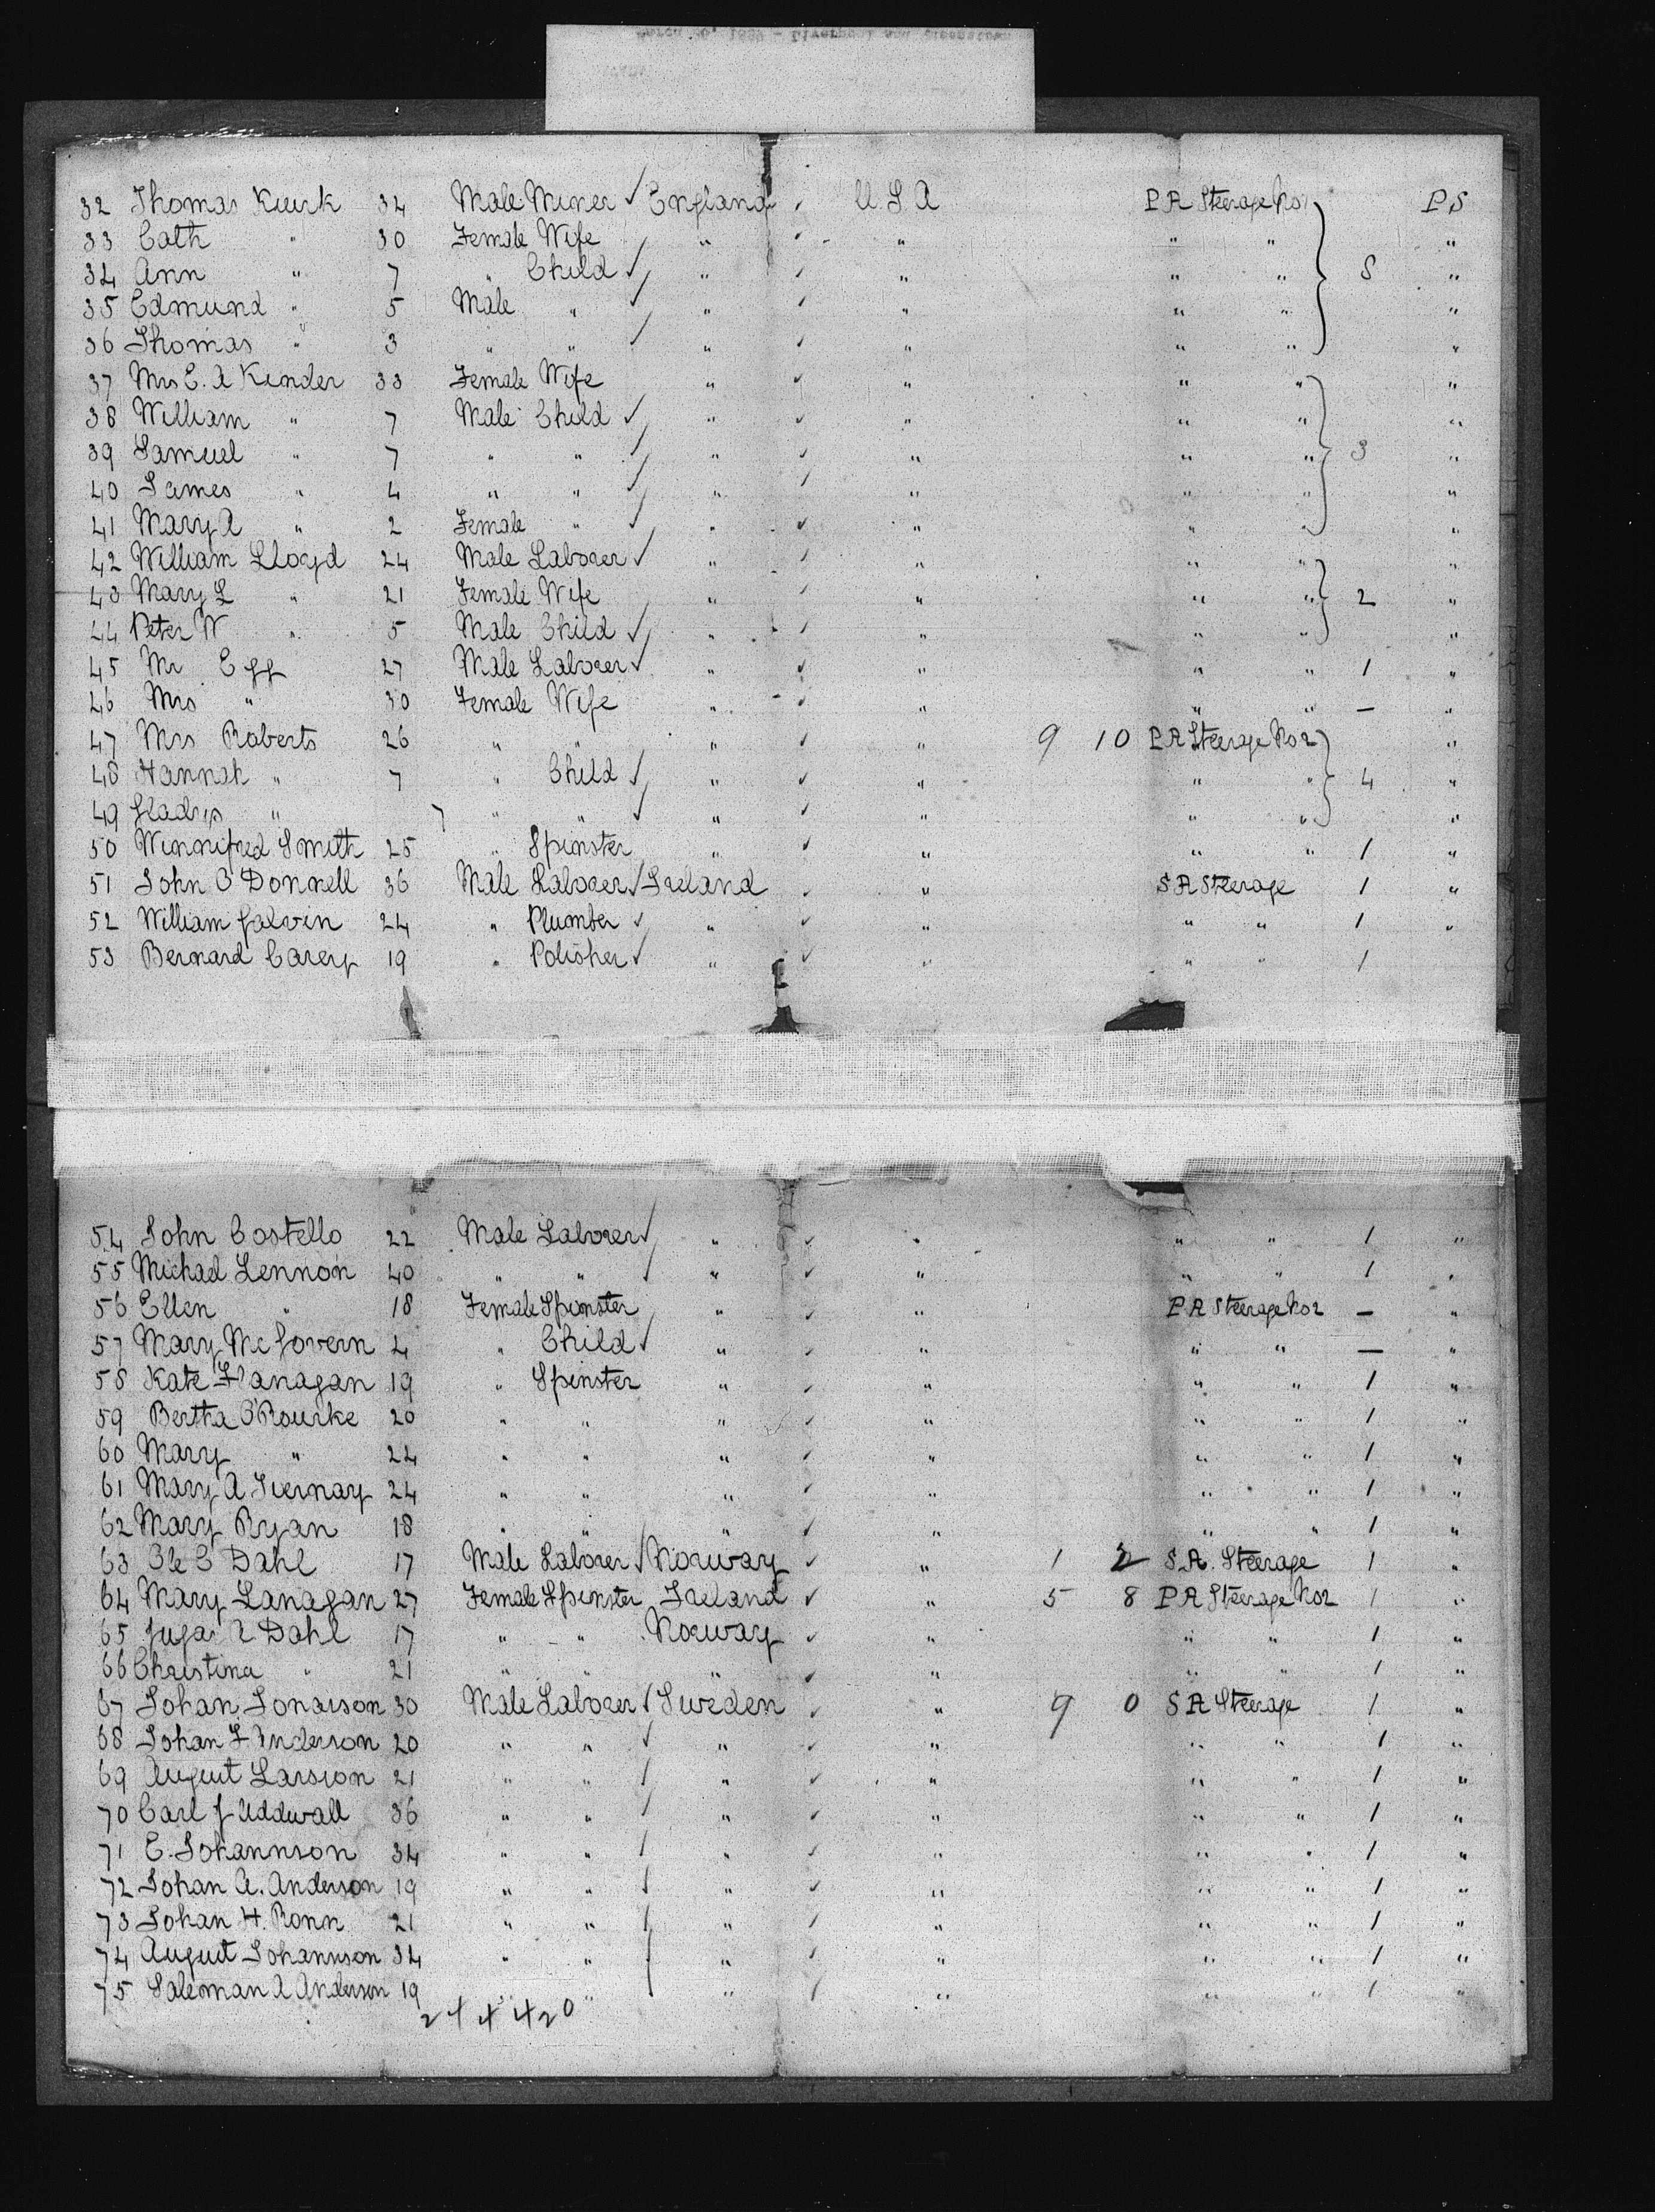 32 Thomas Kuirk 34 Male Miner ✓ England ✓ U.S.A P A Steerage No 1 P S
33 Cath " 30 Female Wife " ✓ " " " "
34 Ann " 7 " Child ✓ " ✓ " " " 5 "
35 Edmund " 5 Male " ✓ " ✓ " " " "
36 Thomas " 3 " " ✓ " ✓ " " " "
37 Mrs E. A Kinder 33 Female Wife " ✓ " " " "
38 William " 7 Male Child ✓ " ✓ " " " "
39 Samuel " 7 " " ✓ " ✓ " " " 3 "
40 James " 4 " " ✓ " ✓ " " " "
41 Mary A " 2 Female " ✓ " ✓ " " " "
42 William Lloyd 24 Male Laborer ✓ " ✓ " " " "
43 Mary L " 21 Female Wife " ✓ " " " 2 "
44 Peter W " 5 Male Child ✓ " ✓ " " " "
45 Mr Egg 27 Male Laborer ✓ " ✓ " " " 1 "
46 Mrs " 30 Female Wife " ✓ " " " — "
47 Mrs Roberts 26 " " " ✓ " 9 10 P A Steerage No 2 "
48 Hannah " 7 " Child ✓ " ✓ " " " 4 "
49 Gladys " 7 " " ✓ " ✓ " " " "
50 Winnifred Smith 25 " Spinster " ✓ " " " 1 "
51 John O'Donnell 36 Male Laborer ✓ Ireland ✓ " S A Steerage 1 "
52 William Galvin 24 " Plumber ✓ " ✓ " " " 1 "
53 Bernard Carey 19 " Polisher ✓ " ✓ " " " 1
54 John Costello 22 Male Laborer ✓ " ✓ " " " 1 "
55 Michael Lennon 40 " " ✓ " ✓ " " " 1 "
56 Ellen " 18 Female Spinster " ✓ " P A Steerage No 2 — "
57 Mary McGovern 4 " Child ✓ " ✓ " " " — "
58 Kate Flanagan 19 " Spinster " ✓ " " " 1 "
59 Bertha O'Rourke 20 " " " ✓ " " " 1 "
60 Mary " 22 " " " ✓ " " " 1 "
61 Mary A Tiernay 24 " " " ✓ " " " 1 "
62 Mary Ryan 18 " " " ✓ " " " 1 "
63 Ole O Dahl 17 Male Laborer ✓ Norway ✓ " 1 2 S.A. Steerage 1 "
64 Mary Lanagan 27 Female Spinster Ireland ✓ " 5 8 P A Steerage No 2 1 "
65 Dahl 17 " " Norway ✓ " " " 1 "
66 Christina " 21 " " " ✓ " " " 1 "
67 Johan Jonasson 30 Male Laborer ✓ Sweden ✓ " 9 0 S A Steerage 1 "
68 Johan F Anderson 20 " " ✓ " ✓ " " " 1 "
69 August Larsson 21 " " / " ✓ " " " 1 "
70 Carl J Uddwall 36 " " / " ✓ " " " 1 "
71 E. Johannson 34 " " / " ✓ " " " 1 "
72 Johan A. Anderson 19 " " ✓ " ✓ " " " 1 "
73 Johan H. Ronn 21 " " / " ✓ " " " 1 "
74 August Johannson 34 " " / " ✓ " " " 1 "
75 Saleman A Anderson 19 " " / " ✓ " " " 1 "